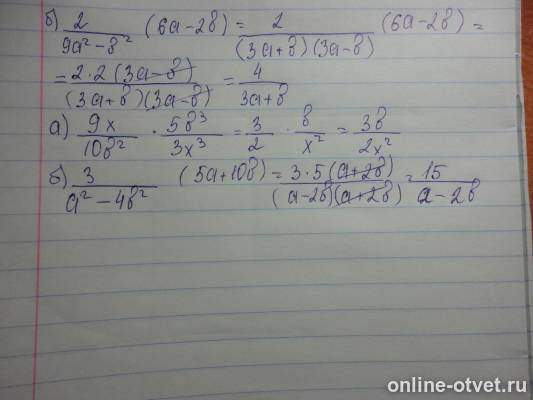 б) 2/(9a² - b²) (6a - 2b) = 2/((3a + b)(3a - b)) (6a - 2b) =
= 2·2(3a - b)/((3a + b)(3a - b)) = 4/(3a + b)
а) 9x/(10b²) · 5b³/(3x³) = 3/2 · b/x² = 3b/(2x²)
б) 3/(a² - 4b²) (5a + 10b) = 3·5(a + 2b)/((a - 2b)(a + 2b)) = 15/(a - 2b)
online-otvet.ru